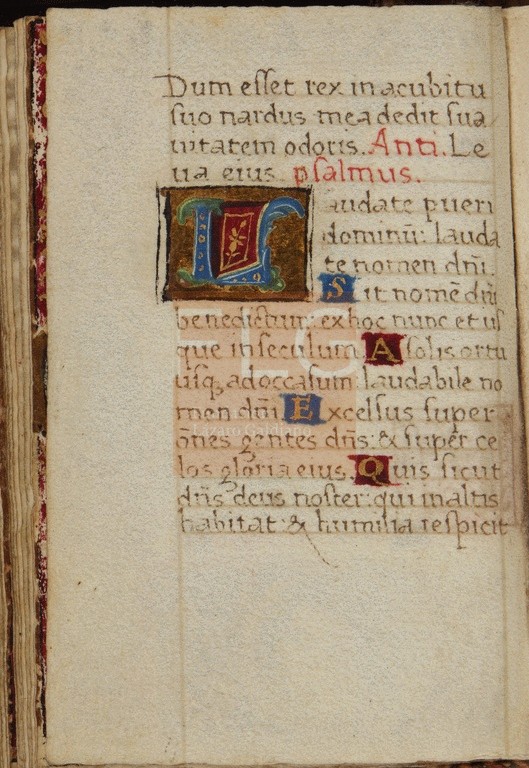 Dum esset rex in acubitu
suo nardus mea dedit sua
vitatem odoris. Anti. Le
va eius. psalmus.
Laudate pueri
dominū: lauda
te nomen dñi.
Sit nomē dñi
benedictum: ex hoc nunc et us
que in seculum. A solis ortu
usq; ad occasum: laudabile no
men dñi. Excelsus super
oñes gentes dñs: & super ce
los gloria eius. Quis sicut
dñs deus noster: qui in altis
habitat: & humilia respicit
FLG
Lázaro Galdiano